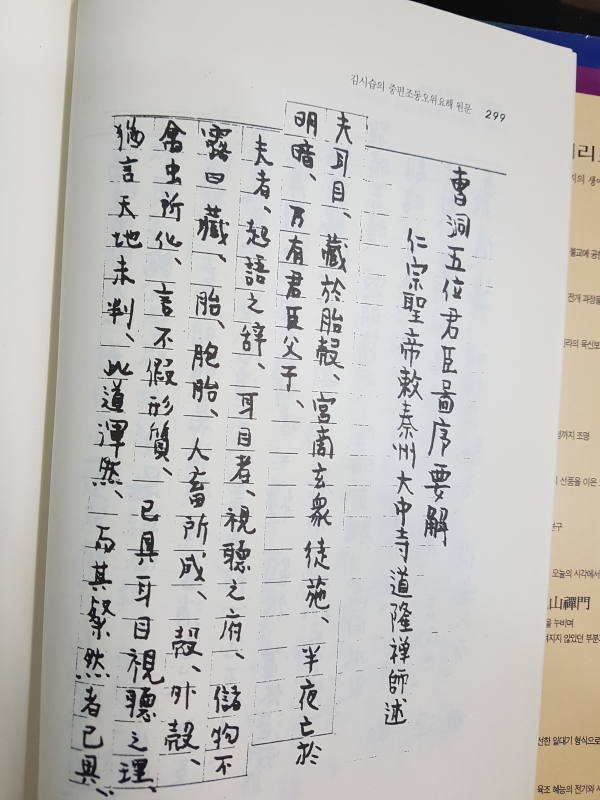 김시습의 중편조동오위요해 원문 299
曹洞五位君臣啚序要解
仁宗聖帝敕秦州大中寺道隆禅師述
夫耳目、藏於胎殼、宮商玄衆徒施、半夜亡於
明暗、万有君臣父子、
夫者、起語之辞、耳目者、視聽之府、儲物不
露曰藏、胎、胞胎、人畜所成、殼、外殼、
禽虫所化、言不假形質、已具耳目視聽之理、
猶言天地未判、此道渾然、而其粲然者已具、
불교에 공헌
전개 과정을
까지 조명
선풍을 이은
연구
오늘의 시각에서
山禪門
을 누비며
지지 않았던 부분
선한 일대기 형식으로
육조 혜능의 전기와